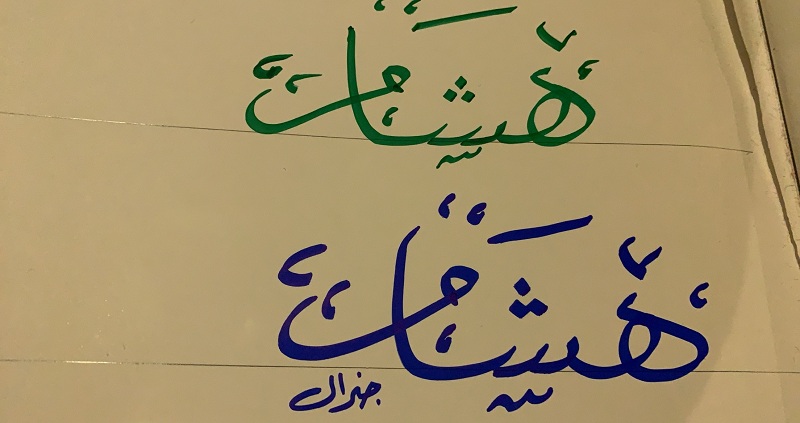 هشام
هشام
جنرال